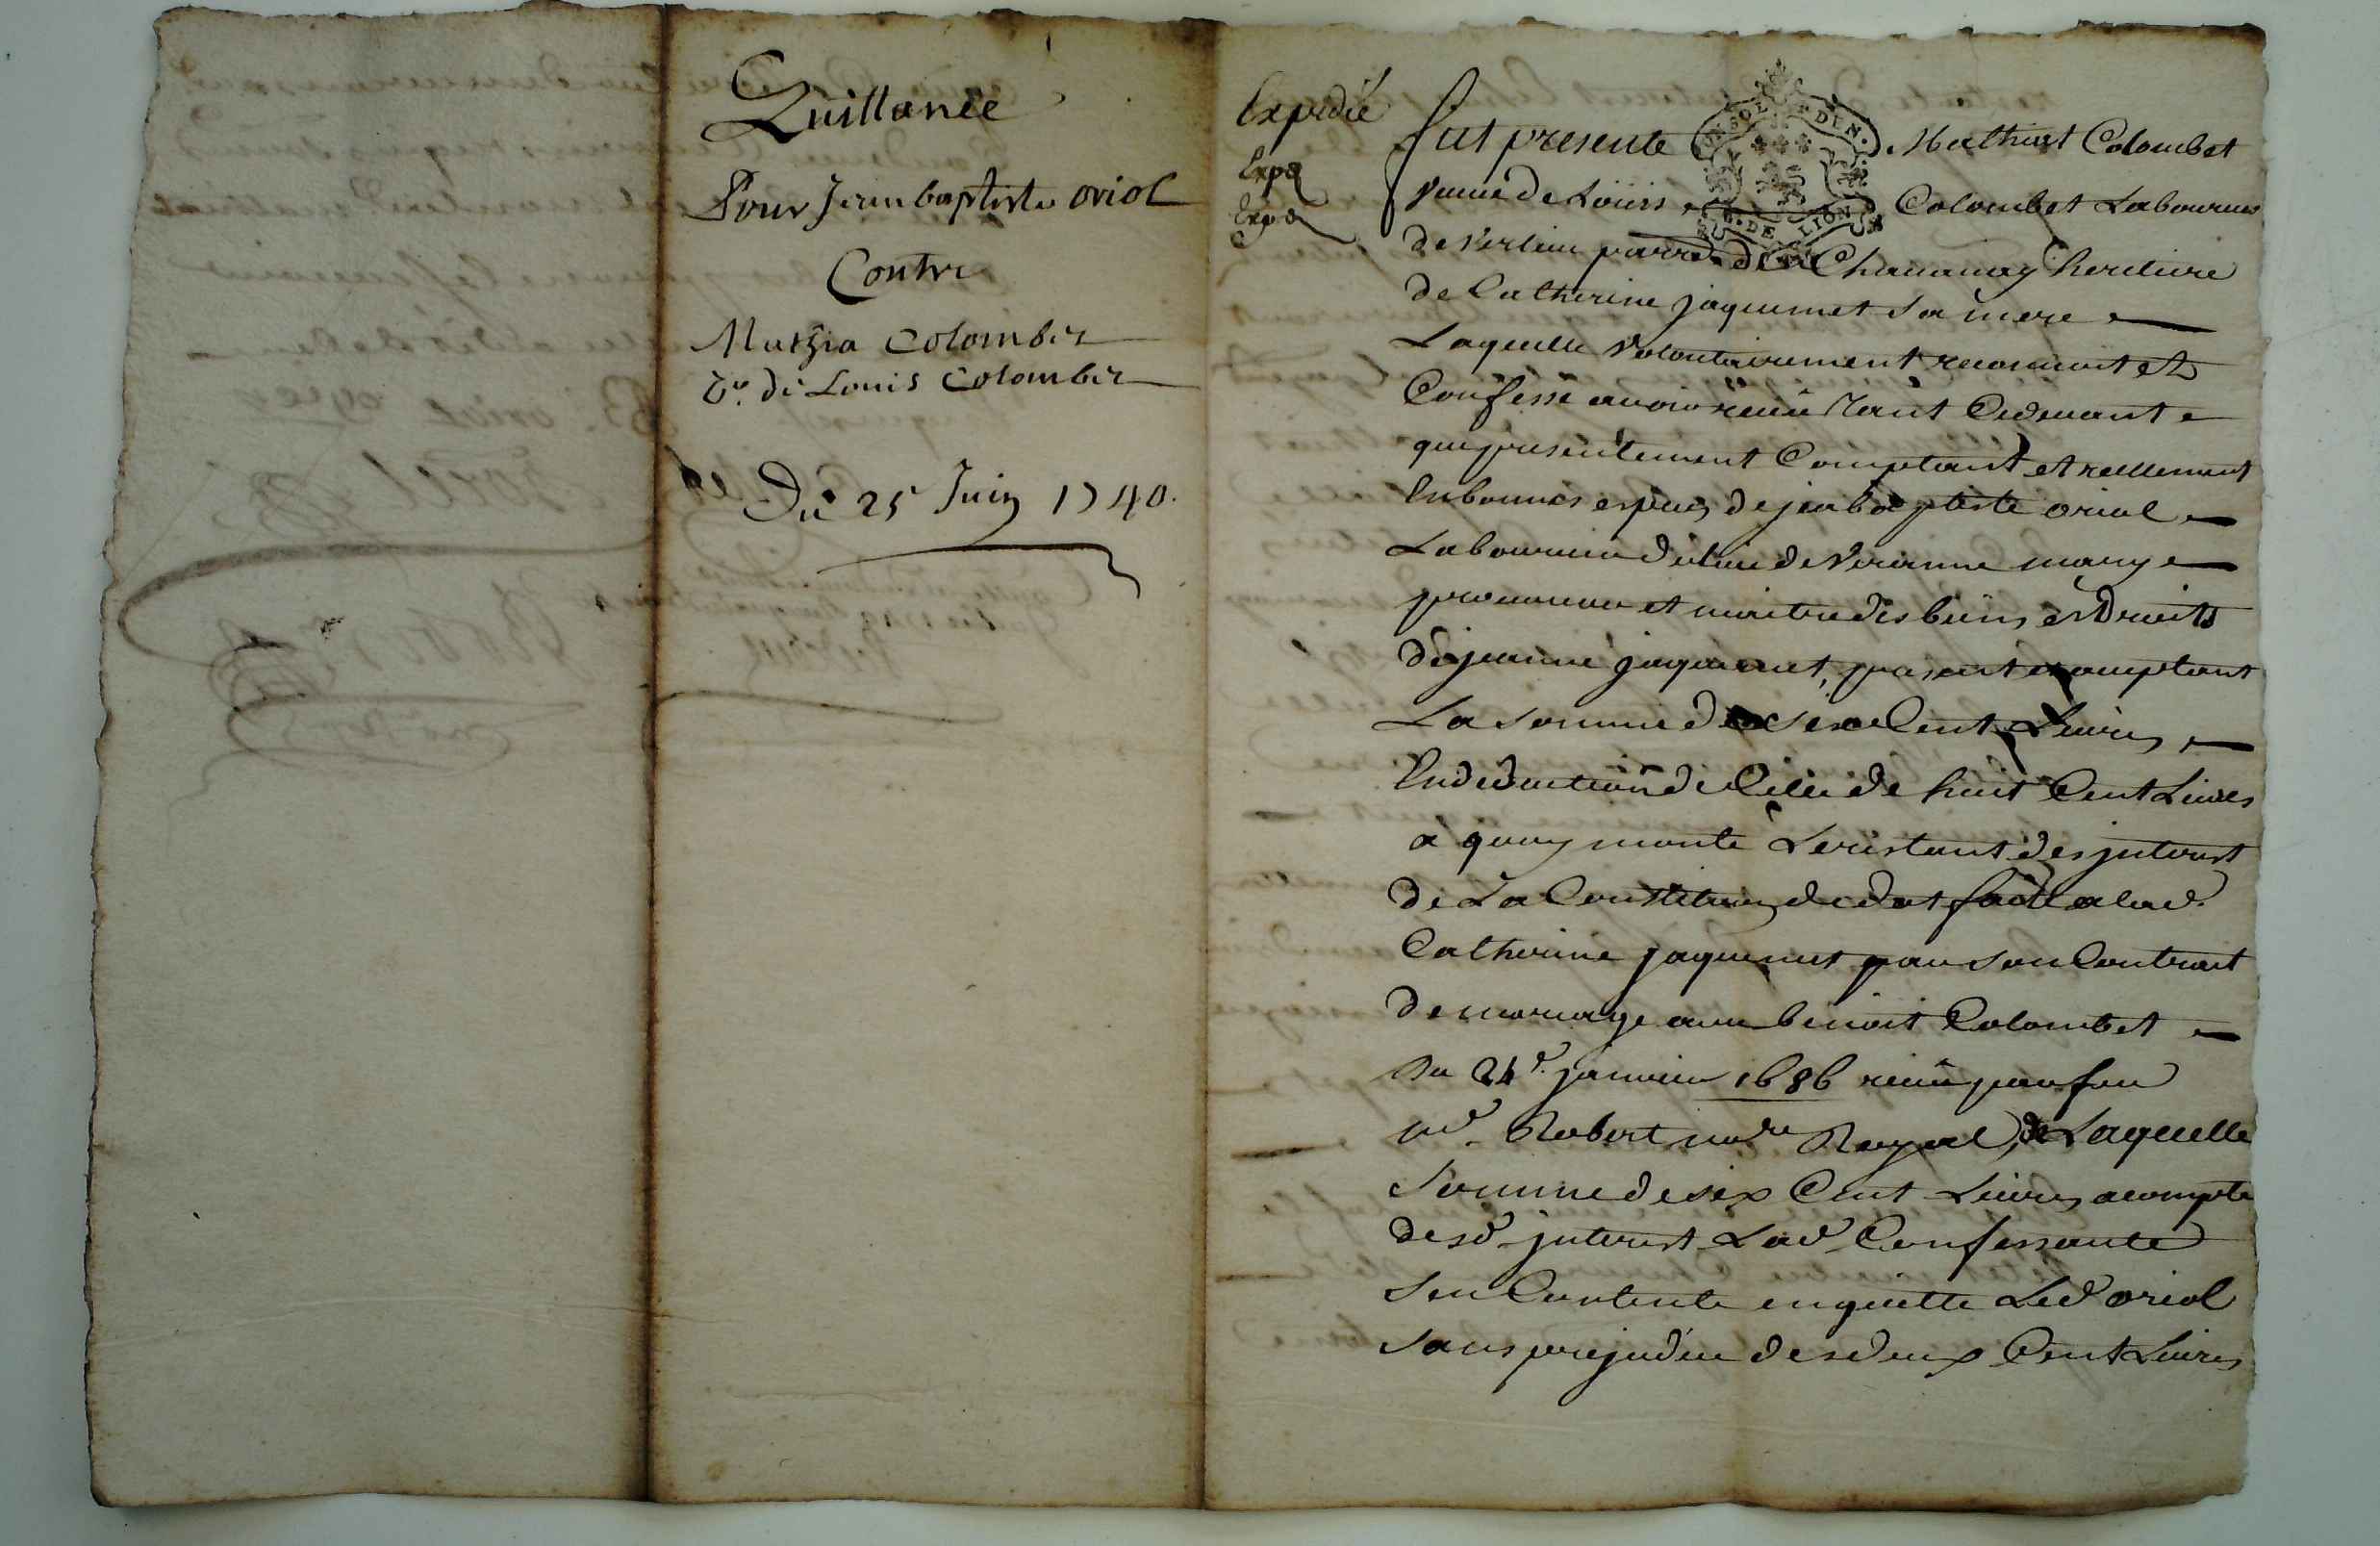 Quittance
Pour Jean baptiste oriol
Contre
Mathia Colombet
Ve. de Louis Colombet
Du 25 Juin 1740.
Expedié
Expé
Expé
fut presente Mathiat Colombet
veuve de Loüis Colombet Laboureur
de verlieu parre. de Chavanay heritiere
de Catherine jaquemet sa mere
Laquelle volontairement reconnoit et
Confesse avoir reçeu tant Cydevant
que presentement Comptant et reellement
En bonnes espèces de jean baptiste oriol
Laboureur du lieu de veranne mary
procureur et maitre des biens et Droits
de jeanne jaquemet, present et acceptant
La somme de six Cent Livres
En deduction de Celle de huit Cent Livres
a quoy monte Le restant des interest
de La Constitution de dot faite a lad.
Catherine jaquemet par son Contrait
de mariage avec benoit Colombet
du 24e. janvier 1686 reçeu par feu
me. Robert nore Royal, de Laquelle
Somme de six Cent Livres acompte
desd. interest Lad. Confessante
sen Contente en quitte Led. oriol
sans prejudice des deux Cent Livres